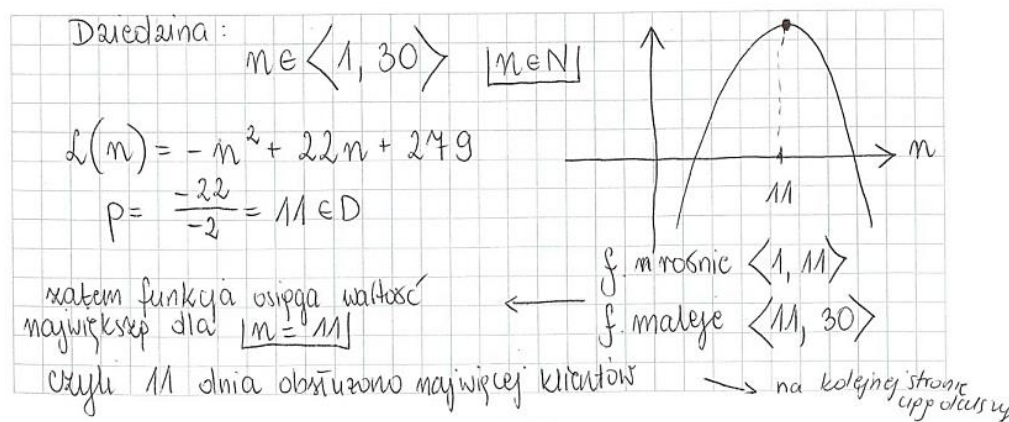 Dziedzina:
n ∈ ⟨1, 30⟩ n ∈ N
L(n) = -n² + 22n + 279
p = -22/-2 = 11 ∈ D
n
11
f. rośnie ⟨1, 11⟩
f. maleje ⟨11, 30⟩
zatem funkcja osiąga wartość
największą dla n = 11
czyli 11 dnia obsłużono najwięcej klientów → na kolejnej stronie